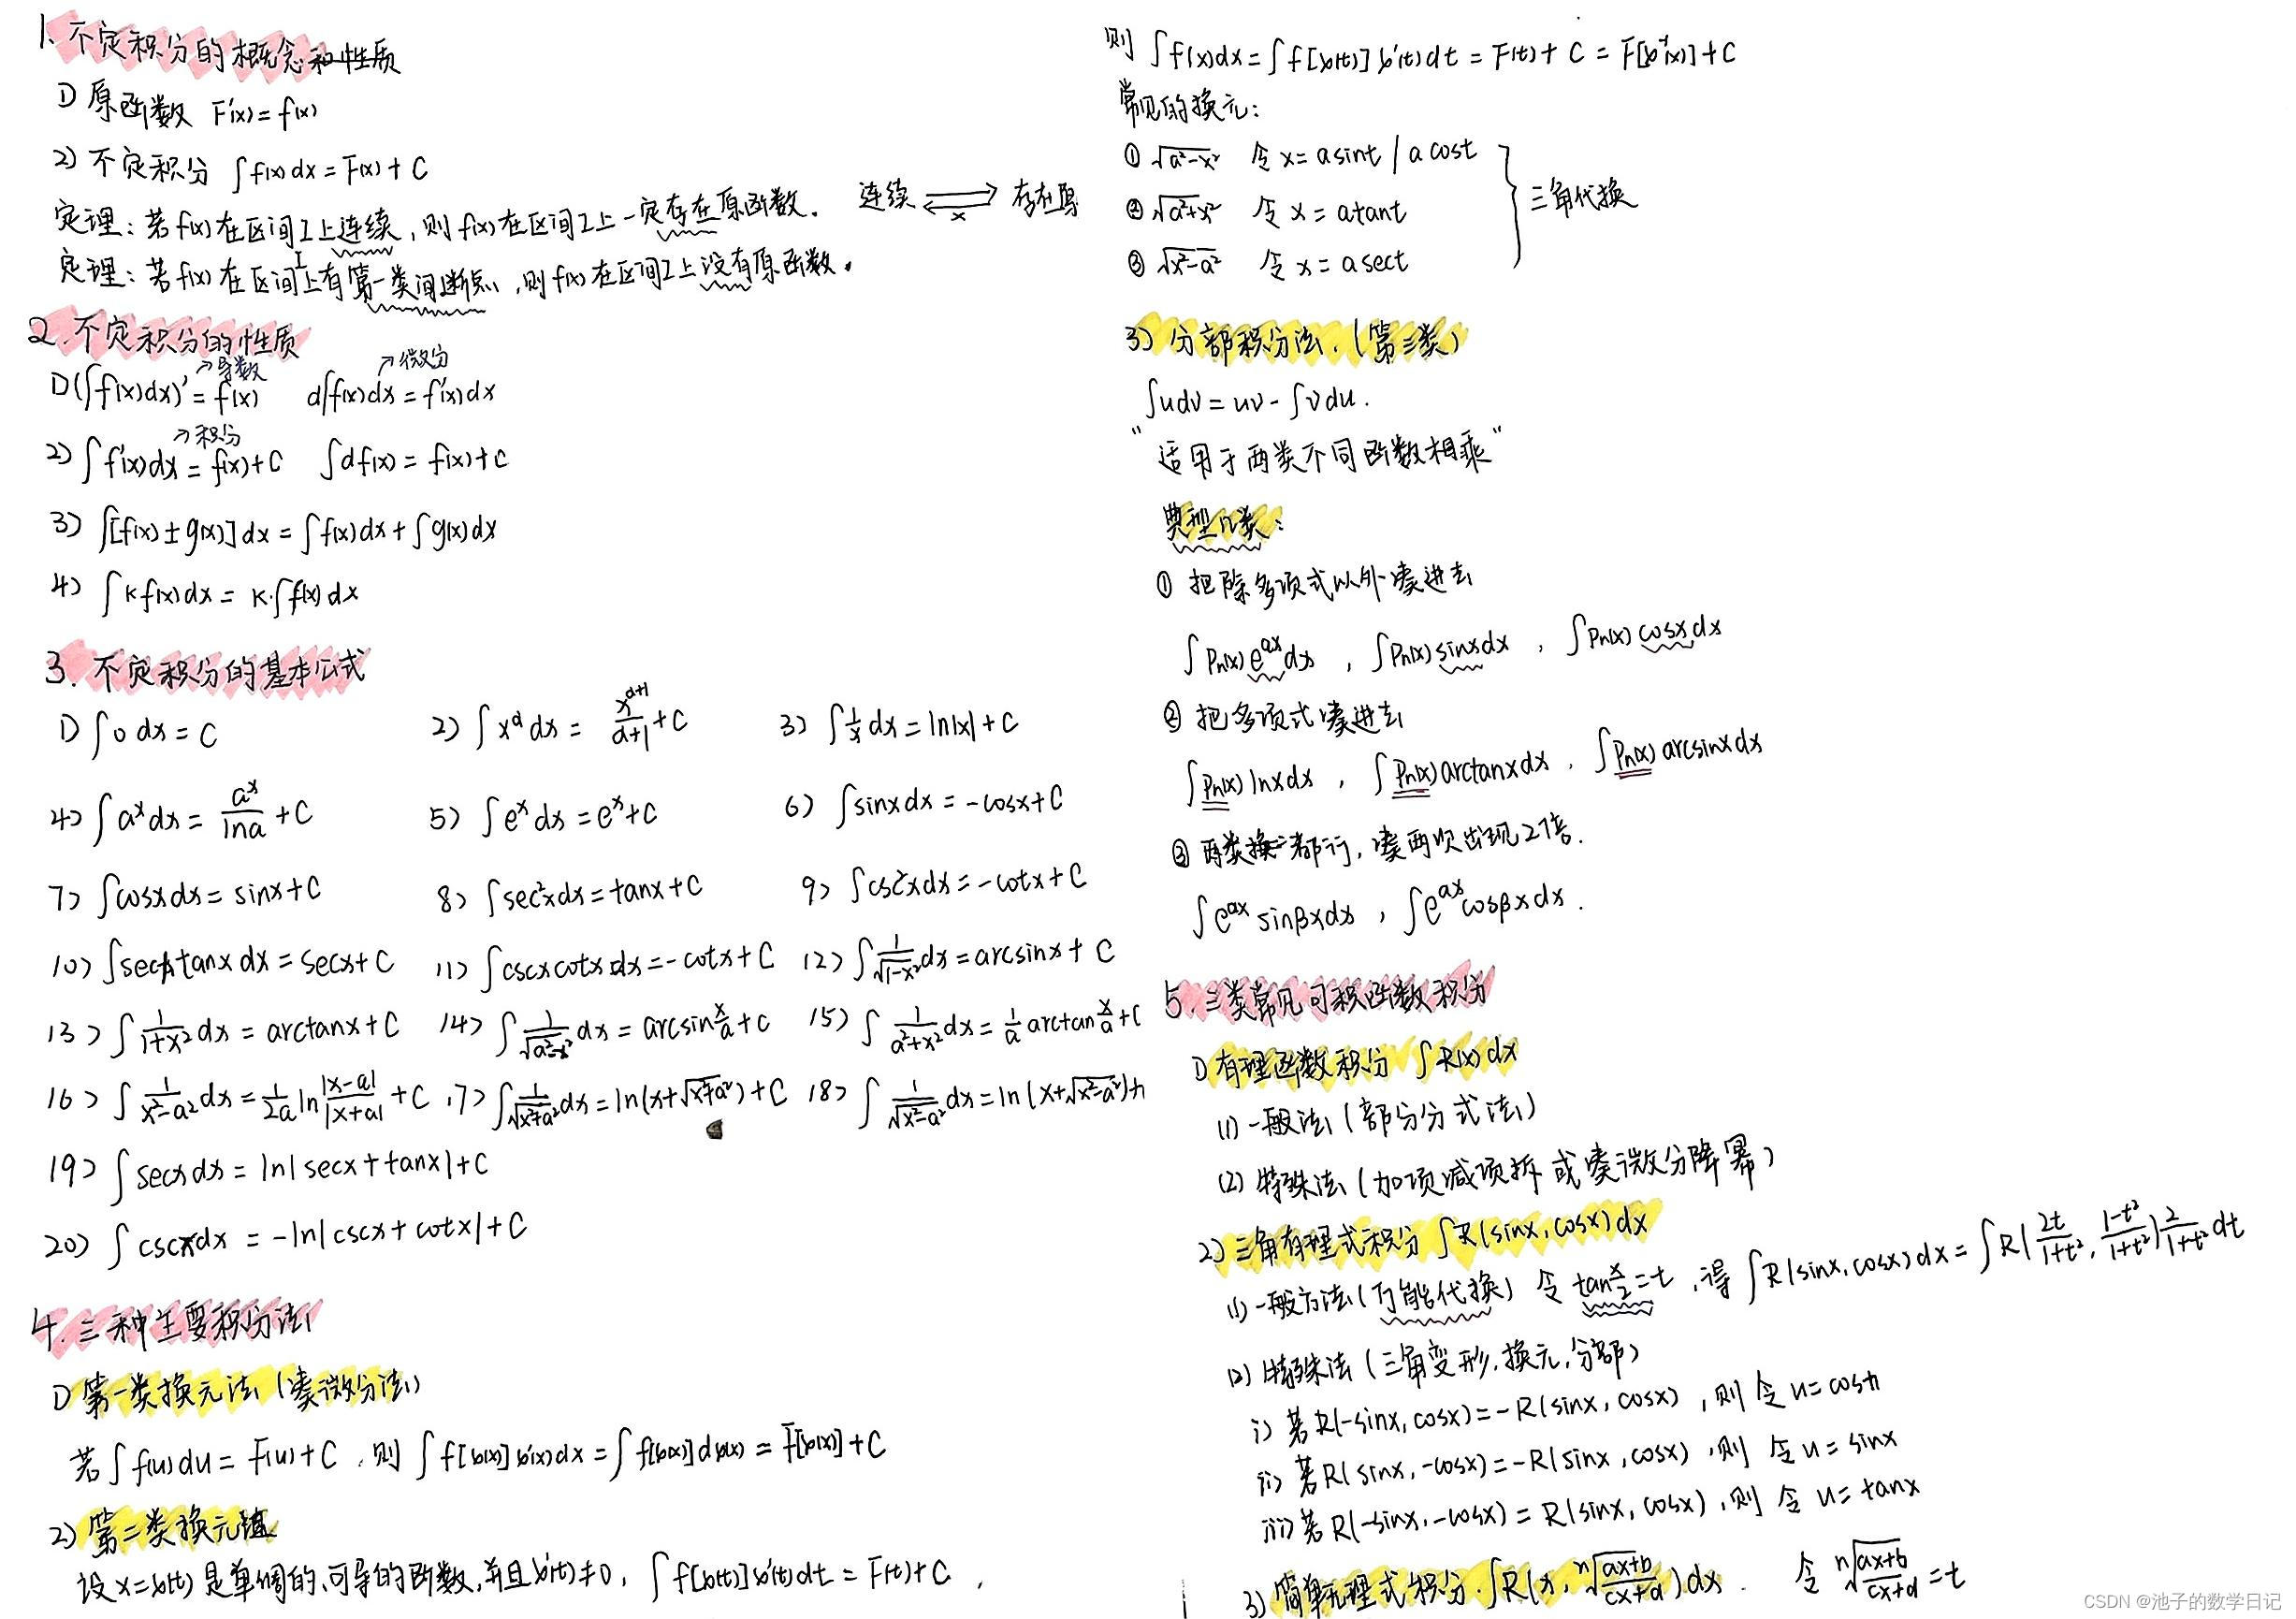 1. 不定积分的概念和性质
1) 原函数 F'(x)=f(x)
2) 不定积分 ∫f(x)dx=F(x)+C
定理：若f(x)在区间I上连续，则f(x)在区间I上一定存在原函数。 连续 ⇌ x 存在原
定理：若f(x)在区间I上有第一类间断点，则f(x)在区间I上没有原函数。
2. 不定积分的性质
→导数 →微分
1) (∫f(x)dx)'=f(x) d∫f(x)dx=f'(x)dx
→积分
2) ∫f'(x)dx=f(x)+C ∫df(x)=f(x)+C
3) ∫[f(x)±g(x)]dx=∫f(x)dx+∫g(x)dx
4) ∫kf(x)dx=k·∫f(x)dx
3. 不定积分的基本公式
1) ∫0dx=C 2) ∫x^α dx=x^(α+1)/(α+1)+C 3) ∫1/x dx=ln|x|+C
4) ∫a^x dx=a^x/lna+C 5) ∫e^x dx=e^x+C 6) ∫sinxdx=-cosx+C
7) ∫cosxdx=sinx+C 8) ∫sec²xdx=tanx+C 9) ∫csc²xdx=-cotx+C
10) ∫secxtanxdx=secx+C 11) ∫cscxcotxdx=-cotx+C 12) ∫1/√(1-x²)dx=arcsinx+C
13) ∫1/(1+x²)dx=arctanx+C 14) ∫1/√(a²-x²)dx=arcsin x/a+C 15) ∫1/(a²+x²)dx=1/a arctan x/a+C
16) ∫1/(x²-a²)dx=1/2a ln|x-a|/|x+a|+C 17) ∫1/√(x²+a²)dx=ln(x+√(x²+a²))+C 18) ∫1/√(x²-a²)dx=ln(x+√(x²-a²))+
19) ∫secxdx=ln|secx+tanx|+C
20) ∫cscxdx=-ln|cscx+cotx|+C
4. 三种主要积分法
1) 第一类换元法（凑微分法）
若∫f(u)du=F(u)+C，则∫f[φ(x)]φ'(x)dx=∫f[φ(x)]dφ(x)=F[φ(x)]+C
2) 第二类换元法
设x=φ(t)是单调的、可导的函数，并且φ'(t)≠0，∫f[φ(t)]φ'(t)dt=F(t)+C，
则∫f(x)dx=∫f[φ(t)]φ'(t)dt=F(t)+C=F[φ⁻¹(x)]+C
常见的换元：
① √(a²-x²) 令x=asint/acost
② √(a²+x²) 令x=atant
③ √(x²-a²) 令x=asect
三角代换
3) 分部积分法.（第三类）
∫udv=uv-∫vdu.
"适用于两类不同函数相乘"
典型几类：
① 把除多项式以外凑进去
∫Pn(x)e^(αx)dx，∫Pn(x)sinxdx，∫Pn(x)cosxdx
② 把多项式凑进去
∫Pn(x)lnxdx，∫Pn(x)arctanxdx，∫Pn(x)arcsinxdx
③ 两类换三都行，凑两次出现2倍.
∫e^(αx)sinβxdx，∫e^(αx)cosβxdx.
5. 三类常见可积函数积分
1) 有理函数积分 ∫R(x)dx
(1) 一般法（部分分式法）
(2) 特殊法（加项减项拆或凑微分降幂）
2) 三角有理式积分 ∫R(sinx,cosx)dx
(1) 一般方法（万能代换）令tan x/2=t，得∫R(sinx,cosx)dx=∫R(2t/(1+t²),(1-t²)/(1+t²))2/(1+t²)dt
(2) 特殊法（三角变形,换元,分部）
i) 若R(-sinx,cosx)=-R(sinx,cosx)，则令u=cosx
ii) 若R(sinx,-cosx)=-R(sinx,cosx)，则令u=sinx
iii) 若R(-sinx,-cosx)=R(sinx,cosx)，则令u=tanx
3) 简单无理式积分.∫R(x,ⁿ√((ax+b)/(cx+d)))dx. 令ⁿ√((ax+b)/(cx+d))=t
CSDN @池子的数学日记